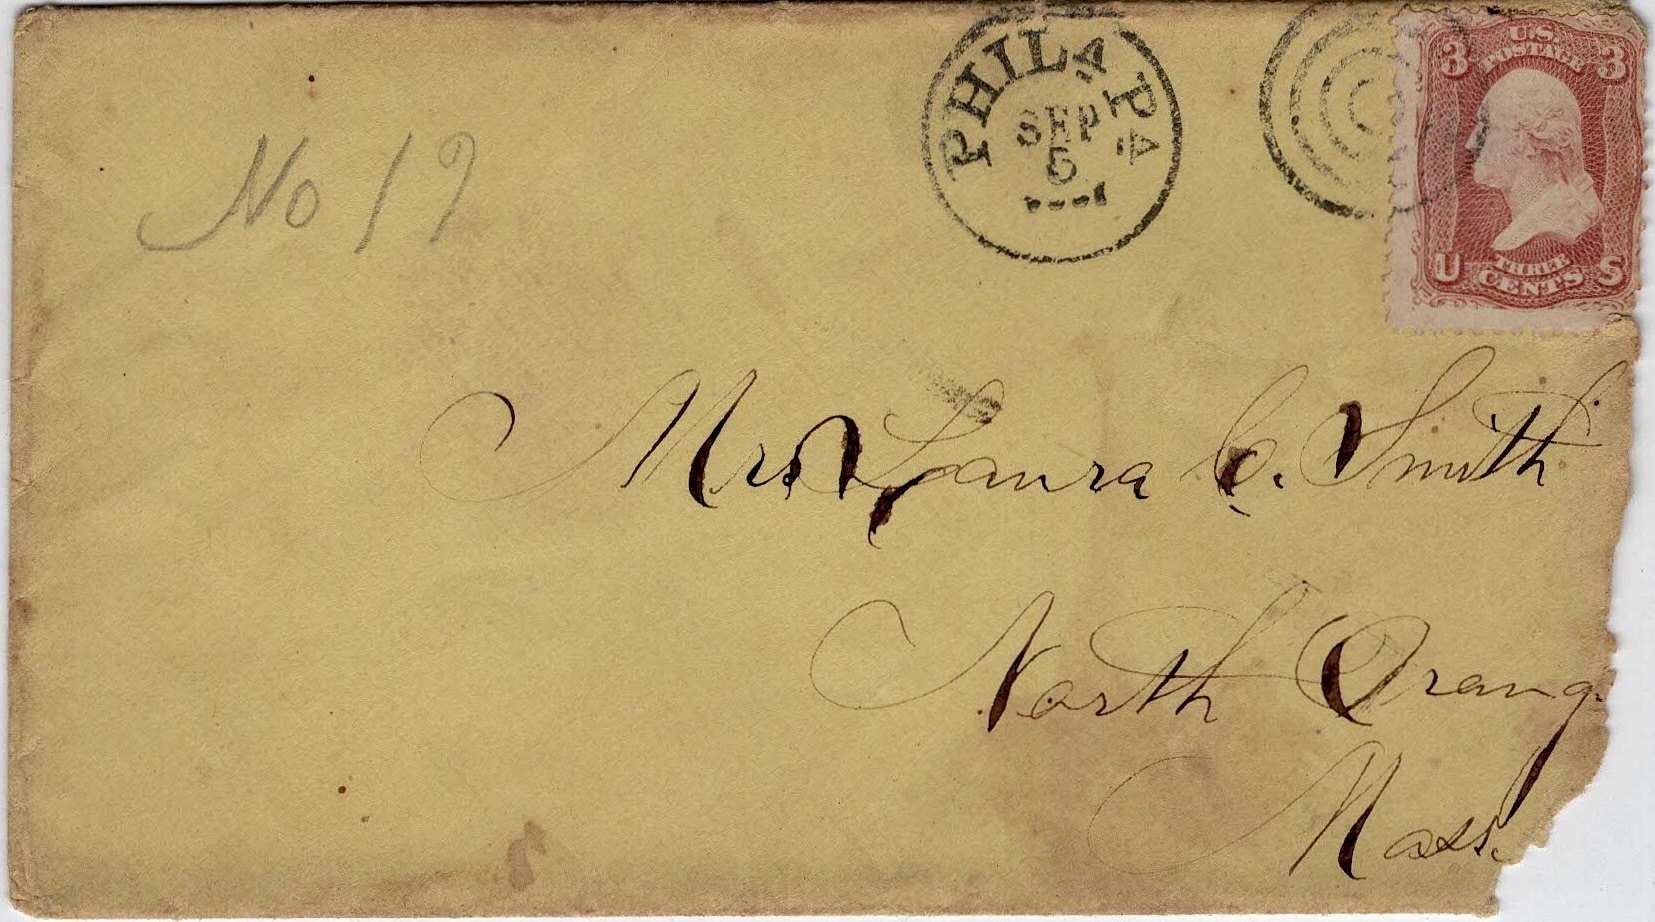 PHILA PA
SEP
6
3 U.S. POSTAGE 3
U THREE CENTS S
No 19
Mrs Laura C. Smith
North Orang
Mass.